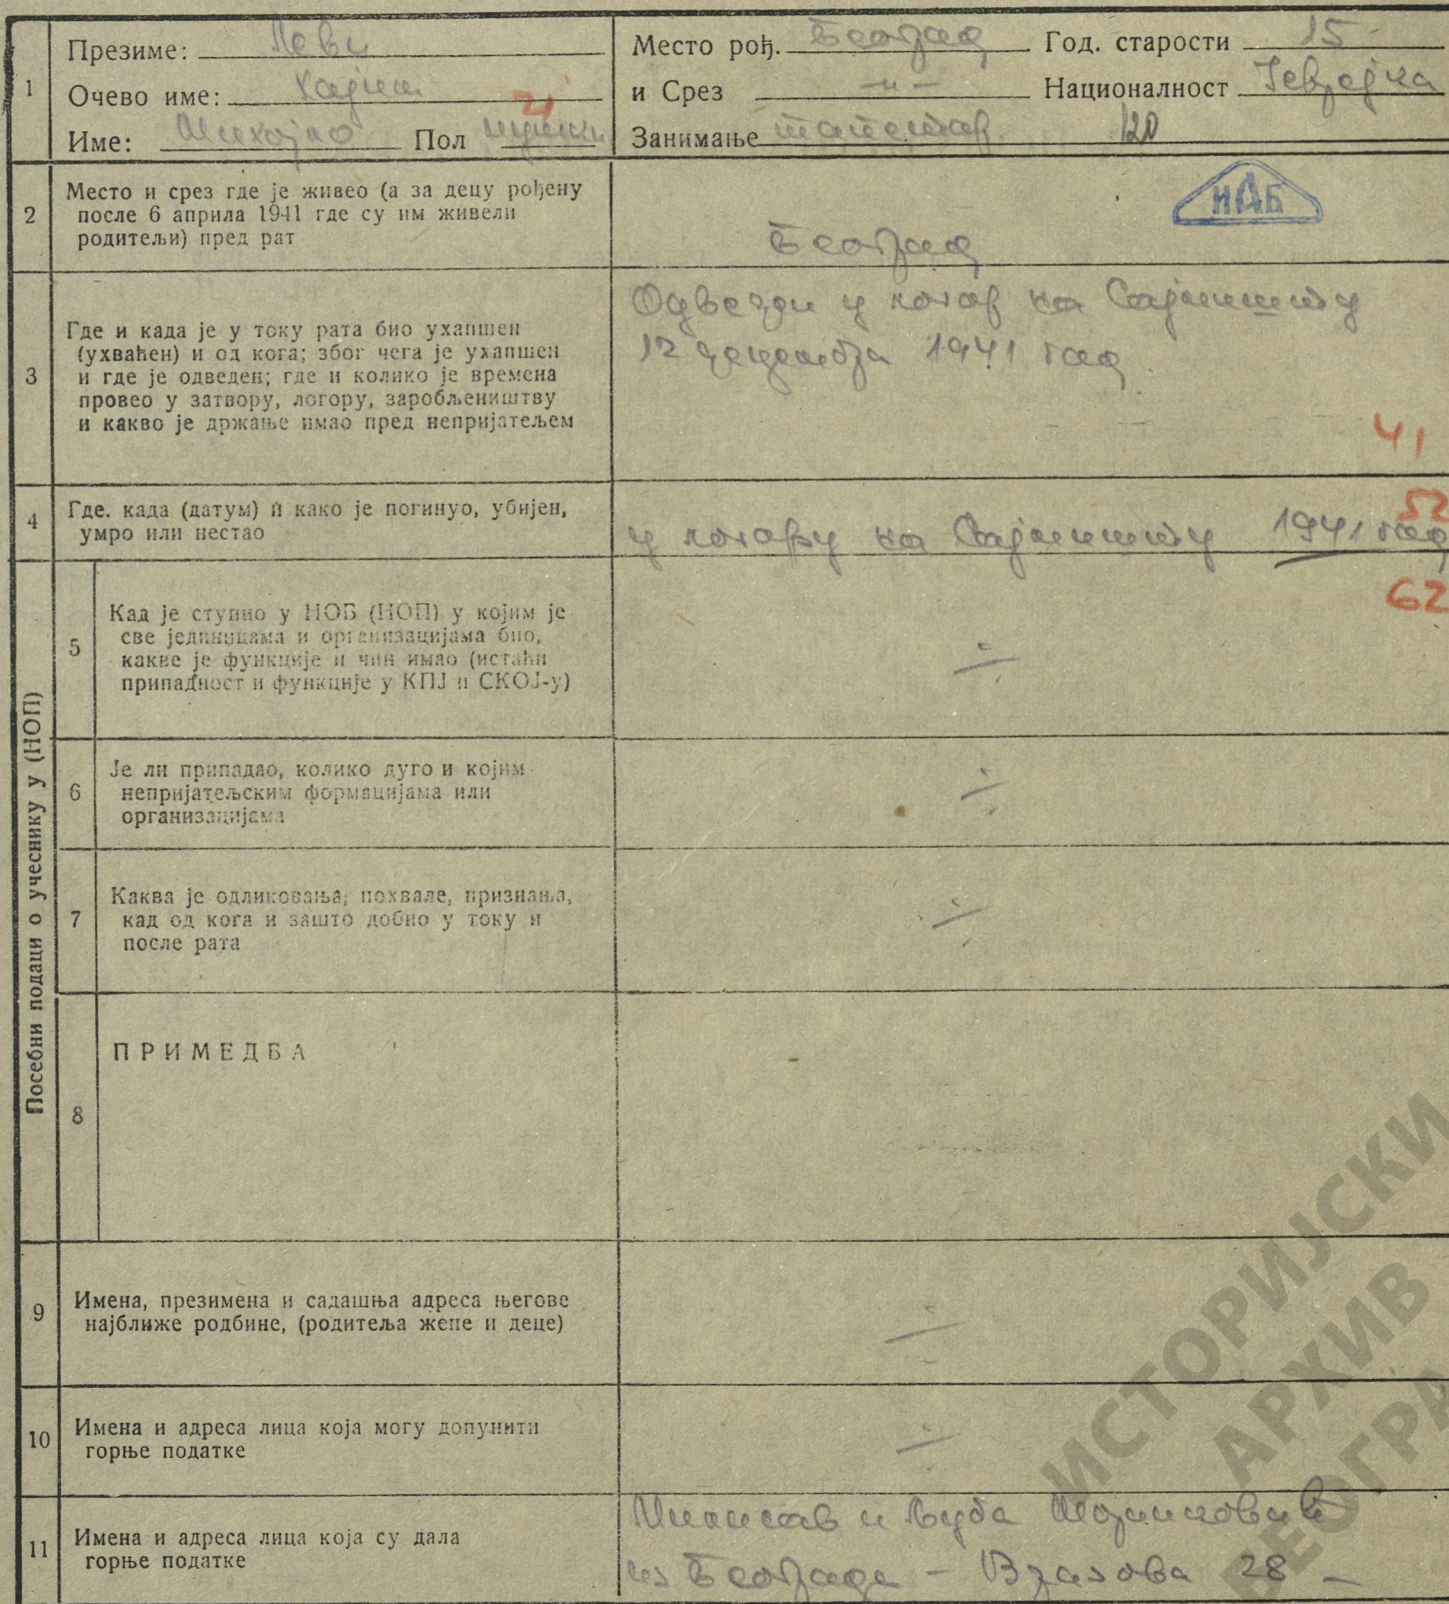 1
Презиме: Леви
Очево име: Хајим
Име: Михојло Пол мушки
21
Место рођ. Београд Год. старости 15
и Срез —„— Националност Јеврејка
Занимање тапетар 120
2
Место и срез где је живео (а за децу рођену
после 6 априла 1941 где су им живели
родитељи) пред рат
ИАБ
Београд
3
Где и када је у току рата био ухапшен
(ухваћен) и од кога; због чега је ухапшен
и где је одведен; где и колико је времена
провео у затвору, логору, заробљеништву
и какво је држање имао пред непријатељем
Одведен у логор на Сајмишту
12 децембра 1941 год.
41
4
Где. када (датум) и како је погинуо, убијен,
умро или нестао
у логору на Сајмишту 1941 год
52
62
Посебни подаци о учеснику у (НОП)
5
Кад је ступио у НОБ (НОП) у којим је
све јединицама и организацијама био,
какве је функције и чин имао (истаћи
припадност и функције у КПЈ и СКОЈ-у)
÷
6
Је ли припадао, колико дуго и којим
непријатељским формацијама или
организацијама
÷
7
Каква је одликовања, похвале, признања,
кад од кога и зашто добио у току и
после рата
÷
8
ПРИМЕДБА
9
Имена, презимена и садашња адреса његове
најближе родбине, (родитеља жене и деце)
÷
10
Имена и адреса лица која могу допунити
горње податке
÷
11
Имена и адреса лица која су дала
горње податке
Милисав и Љуба
из Београда – Вразова 28 –
ИСТОРИЈСКИ
АРХИВ
БЕОГРА